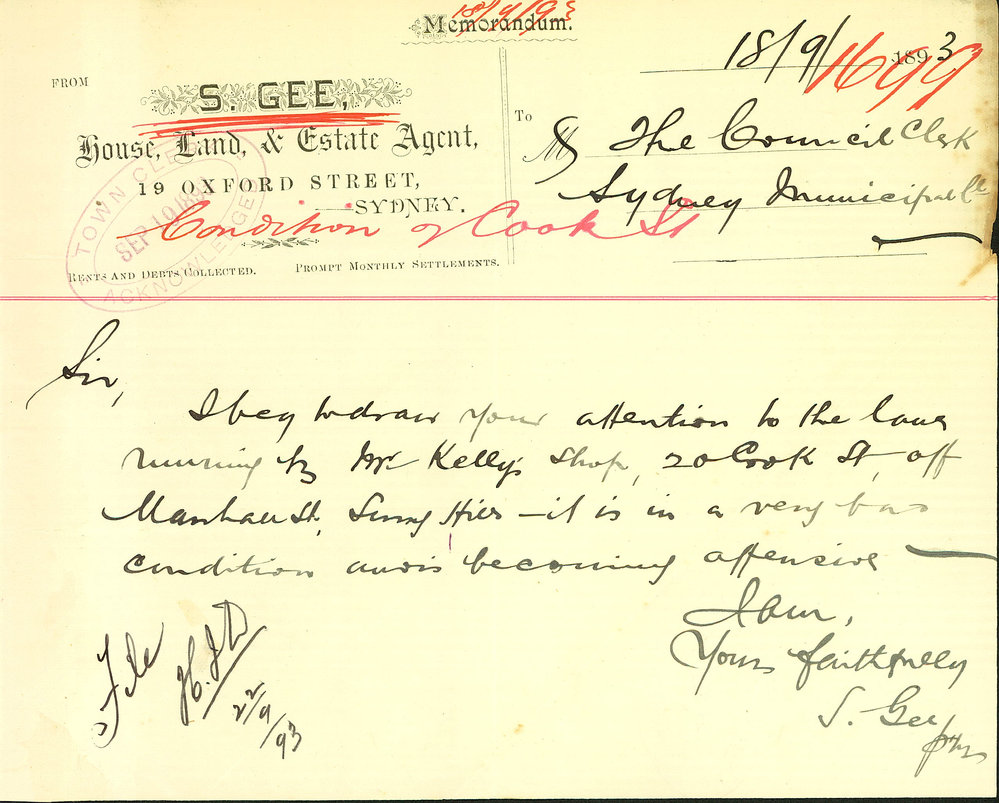 18/9/93
Memorandum.
18/9/ 1893
1699
FROM
S. GEE,
House, Land, & Estate Agent,
19 OXFORD STREET,
SYDNEY.
To
M The Council Clerk
Sydney Municipal Cl
TOWN CLERK
SEP 1893
ACKNOWLEDGED
Condition of Cook St
RENTS AND DEBTS COLLECTED. PROMPT MONTHLY SETTLEMENTS.
Sir,
I beg to draw your attention to the lane
running by Mr Kelly's Shop, 20 Cook St, off
Marshall St, Surry Hills - it is in a very bad
condition and is becoming offensive
I am,
Yours faithfully
S. Gee
File
22/9/93